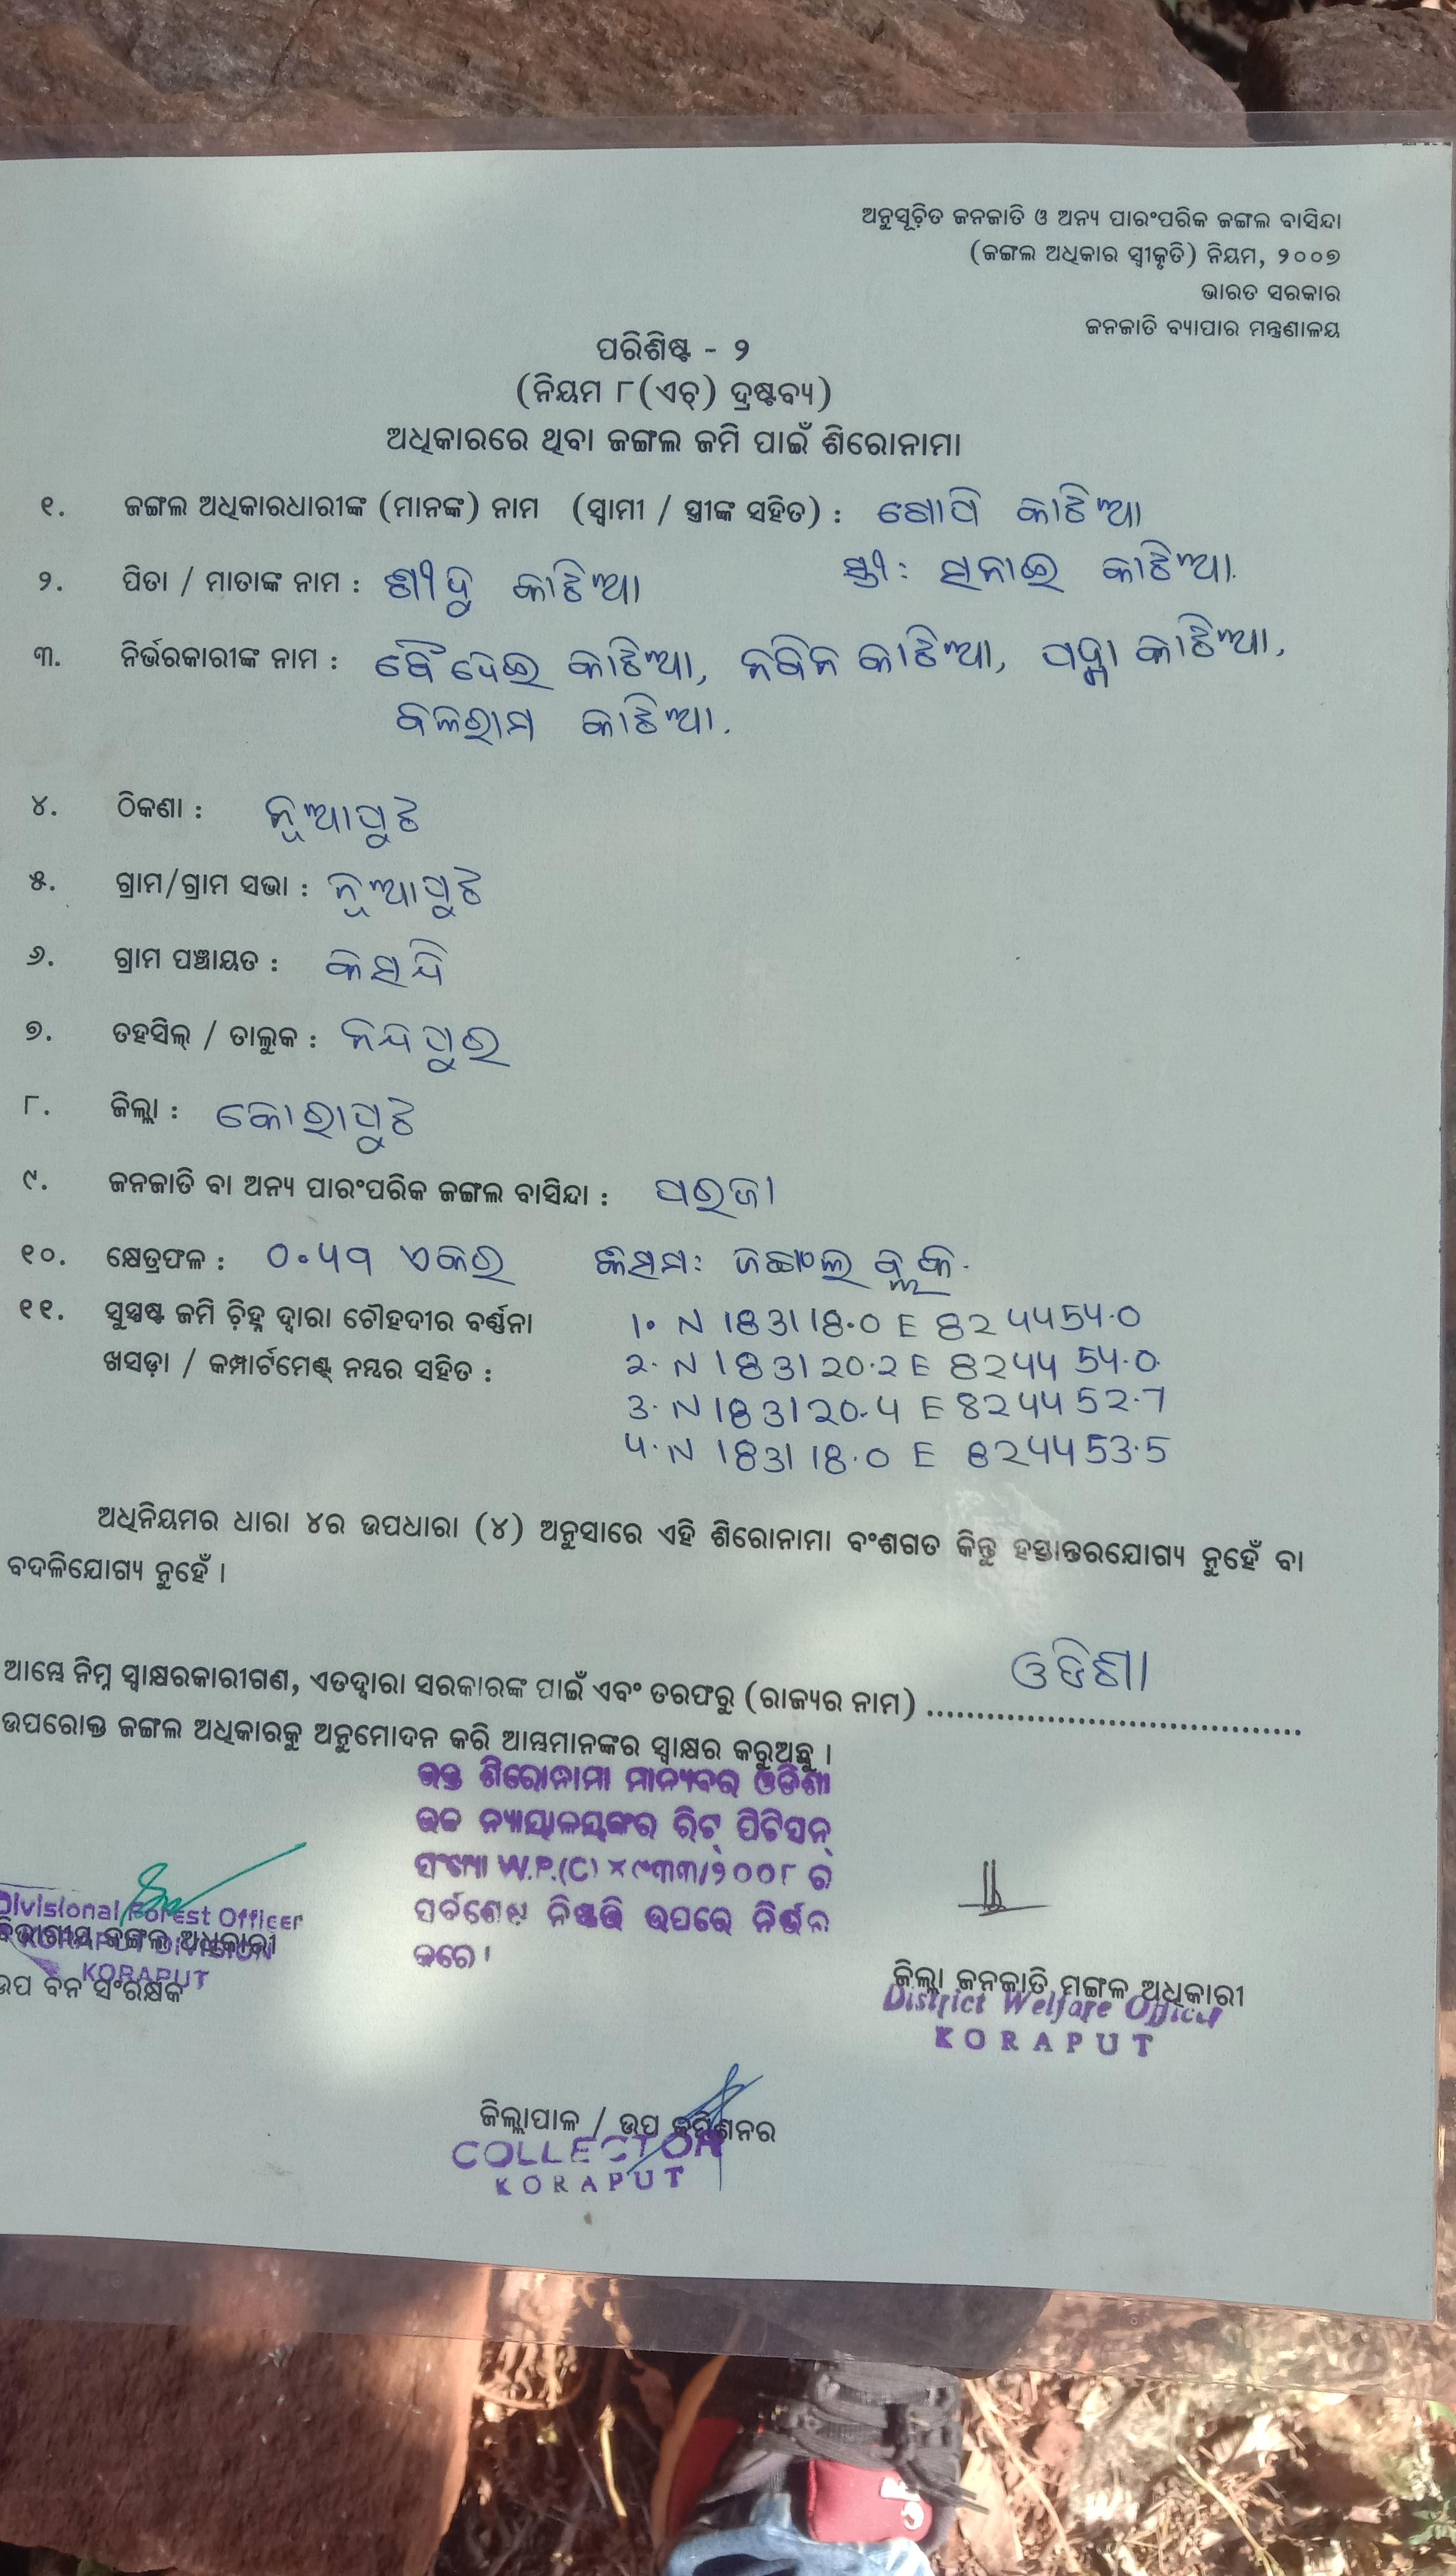 ଅନୁସୂଚିତ ଜନଜାତି ଓ ଅନ୍ୟ ପାରଂପରିକ ଜଙ୍ଗଲ ବାସିନ୍ଦା
(ଜଙ୍ଗଲ ଅଧିକାର ସ୍ୱୀକୃତି) ନିୟମ, ୨୦୦୭
ଭାରତ ସରକାର
ଜନଜାତି ବ୍ୟାପାର ମନ୍ତ୍ରଣାଳୟ
ପରିଶିଷ୍ଟ - ୨
(ନିୟମ ୮(ଏଚ୍) ଦ୍ରଷ୍ଟବ୍ୟ)
ଅଧିକାରରେ ଥିବା ଜଙ୍ଗଲ ଜମି ପାଇଁ ଶିରୋନାମା
୧. ଜଙ୍ଗଲ ଅଧିକାରଧାରୀଙ୍କ (ମାନଙ୍କ) ନାମ (ସ୍ୱାମୀ / ସ୍ତ୍ରୀଙ୍କ ସହିତ) : ଗୋପି କାଠିଆ
ସ୍ତ୍ରୀ: ସନାଇ କାଠିଆ.
୨. ପିତା / ମାତାଙ୍କ ନାମ : କାଠିଆ
୩. ନିର୍ଭରକାରୀଙ୍କ ନାମ : କାଠିଆ, ନବିନ କାଠିଆ, ପଦ୍ମା କାଠିଆ,
ବଳରାମ କାଠିଆ.
୪. ଠିକଣା : ନୂଆପୁଟ
୫. ଗ୍ରାମ/ଗ୍ରାମ ସଭା : ନୂଆପୁଟ
୬. ଗ୍ରାମ ପଞ୍ଚାୟତ : କସନ୍ଦି
୭. ତହସିଲ୍ / ତାଲୁକ : ନନ୍ଦପୁର
୮. ଜିଲ୍ଲା : କୋରାପୁଟ
୯. ଜନଜାତି ବା ଅନ୍ୟ ପାରଂପରିକ ଜଙ୍ଗଲ ବାସିନ୍ଦା : ପରଜା
୧୦. କ୍ଷେତ୍ରଫଳ : ଏକର କିସମ:
୧୧. ସୁସ୍ପଷ୍ଟ ଜମି ଚିହ୍ନ ଦ୍ୱାରା ଚୌହଦୀର ବର୍ଣ୍ଣନା
ଖସଡ଼ା / କମ୍ପାର୍ଟମେଣ୍ଟ୍ ନମ୍ବର ସହିତ :
1. N 183118.0 E 824454.0
2. N 183120.2 E 824454.0
3. N 183120.4 E 824452.7
4. N 183118.0 E 824453.5
ଅଧିନିୟମର ଧାରା ୪ର ଉପଧାରା (୪) ଅନୁସାରେ ଏହି ଶିରୋନାମା ବଂଶଗତ କିନ୍ତୁ ହସ୍ତାନ୍ତରଯୋଗ୍ୟ ନୁହେଁ ବା
ବଦଳିଯୋଗ୍ୟ ନୁହେଁ ।
ଆମ୍ଭେ ନିମ୍ନ ସ୍ୱାକ୍ଷରକାରୀଗଣ, ଏତଦ୍ଵାରା ସରକାରଙ୍କ ପାଇଁ ଏବଂ ତରଫରୁ (ରାଜ୍ୟର ନାମ) ଓଡିଶା
ଉପରୋକ୍ତ ଜଙ୍ଗଲ ଅଧିକାରକୁ ଅନୁମୋଦନ କରି ଆମ୍ଭମାନଙ୍କର ସ୍ୱାକ୍ଷର କରୁଅଛୁ ।
ଉକ୍ତ ଶିରୋନାମା ମାନ୍ୟବର ଓଡିଶା
ଉଚ୍ଚ ନ୍ୟାୟାଳୟଙ୍କର ରିଟ୍ ପିଟିସନ୍
ସଂଖ୍ୟା W.P.(C) ୪୯୩୩/୨୦୦୮ ର
ସର୍ବଶେଷ ନିଷ୍ପତ୍ତି ଉପରେ ନିର୍ଭର
କରେ ।
Divisional Forest Officer
ବିଭାଗୀୟ ଜଙ୍ଗଲ ଅଧିକାରୀ
KORAPUT DIVISION
KORAPUT
ଉପ ବନ ସଂରକ୍ଷକ
ଜିଲ୍ଲା ଜନଜାତି ମଙ୍ଗଳ ଅଧିକାରୀ
District Welfare Officer
KORAPUT
ଜିଲ୍ଲାପାଳ / ଉପ କମିଶନର
COLLECTOR
KORAPUT